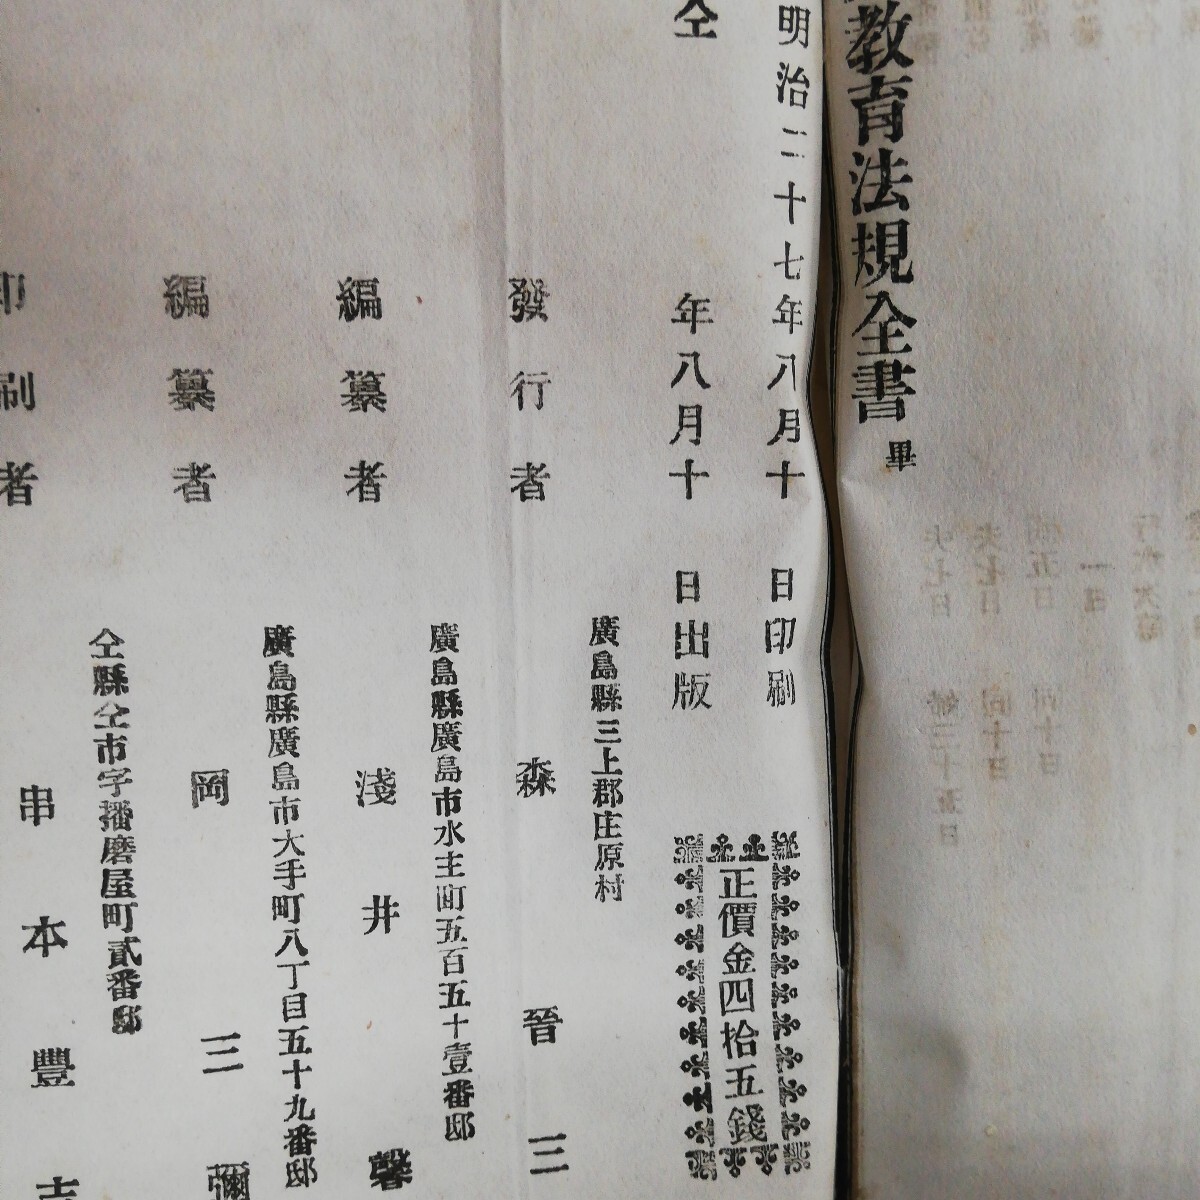 教育法規全書 畢
明治二十七年八月十 日印刷
仝 年八月十 日出版
正價金四拾五錢
廣島縣三上郡庄原村
發行者 森晉三
廣島縣廣島市水主町五百五十壹番邸
編纂者 淺井馨
廣島縣廣島市大手町八丁目五十九番邸
編纂者 岡三彌
仝縣仝市字播磨屋町貳番邸
印刷者 串本豐吉